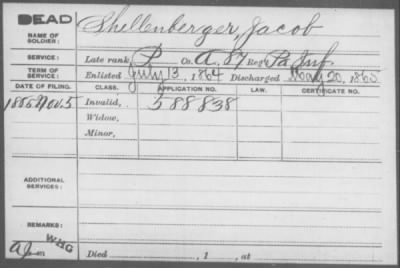 DEAD
NAME OF SOLDIER: Shellenberger, Jacob
SERVICE: Late rank, P Co. A, 87 Reg't Pa Inf.
TERM OF SERVICE: Enlisted July 13, 1864 Discharged May 20, 1865
DATE OF FILING. CLASS. APPLICATION NO. LAW. CERTIFICATE NO.
Nov. 5 Invalid, 588838
Widow,
Minor,
ADDITIONAL SERVICES:
REMARKS:
WHG
Died , 1 , at